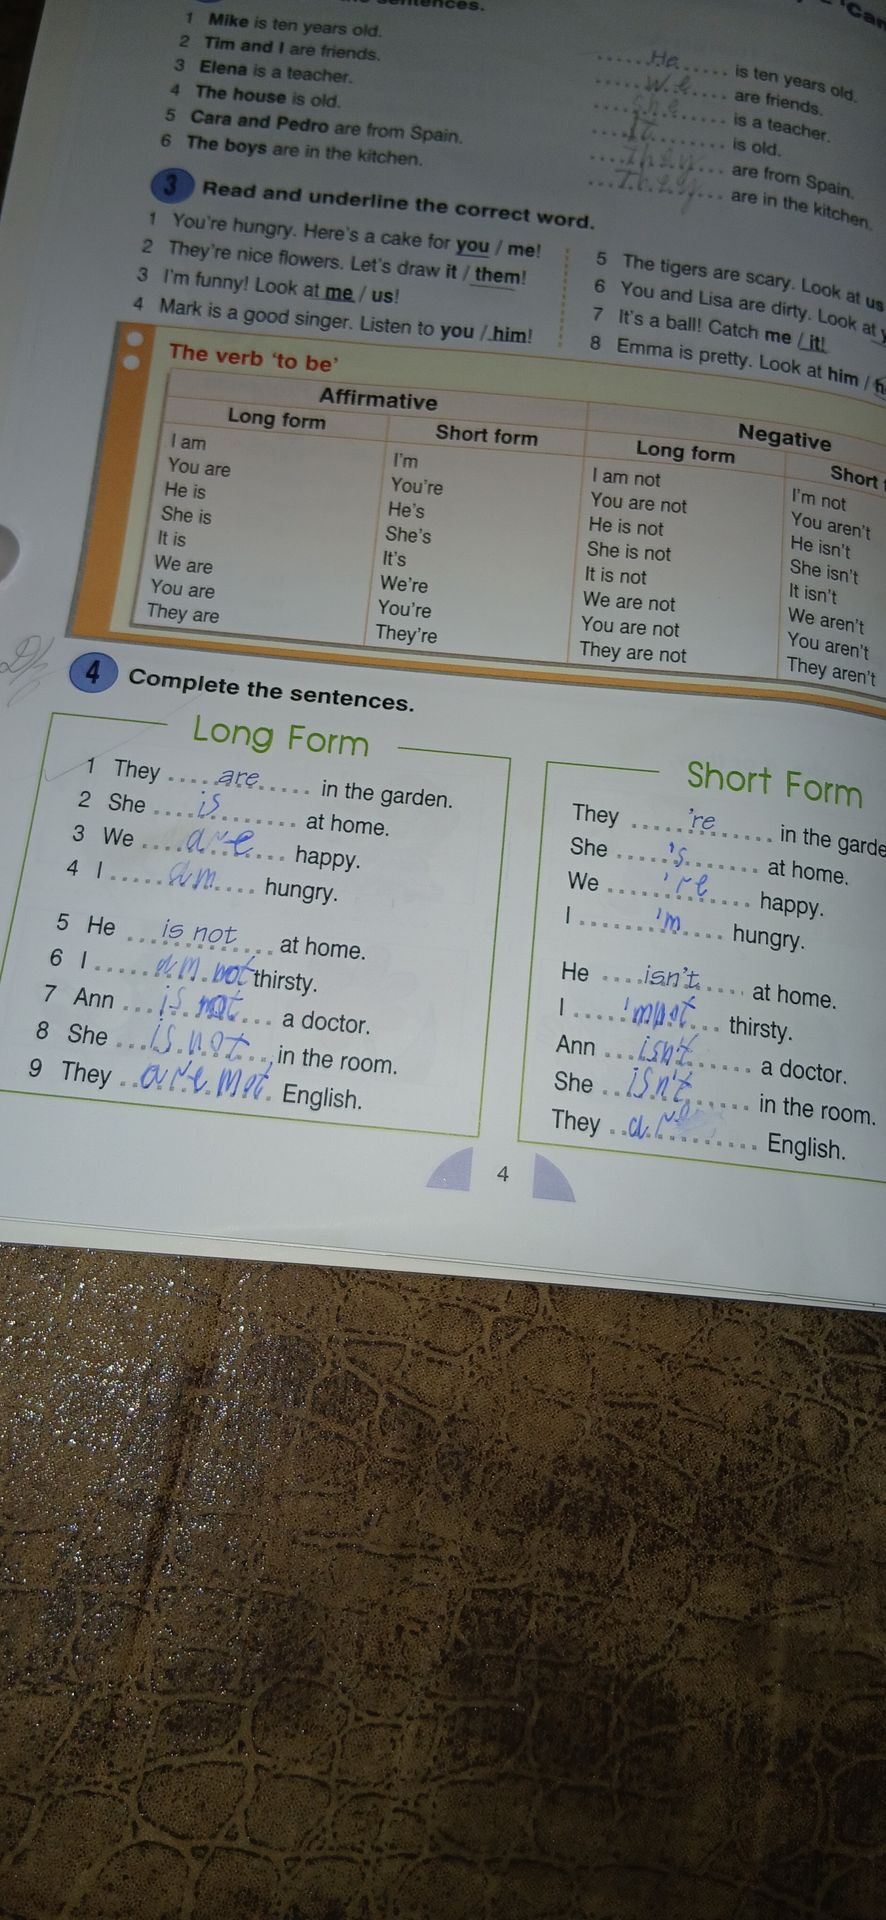 1 Mike is ten years old.
2 Tim and I are friends.
3 Elena is a teacher.
4 The house is old.
5 Cara and Pedro are from Spain.
6 The boys are in the kitchen.
.....He..... is ten years old.
.....We..... are friends.
.....She..... is a teacher.
.....It..... is old.
.... ... are from Spain.
...They... are in the kitchen.
3 Read and underline the correct word.
1 You're hungry. Here's a cake for you / me!
2 They're nice flowers. Let's draw it / them!
3 I'm funny! Look at me / us!
4 Mark is a good singer. Listen to you / him!
5 The tigers are scary. Look at us
6 You and Lisa are dirty. Look at
7 It's a ball! Catch me / it!
8 Emma is pretty. Look at him /
The verb 'to be'
Affirmative Negative
Long form Short form Long form Short
I am I'm I am not I'm not
You are You're You are not You aren't
He is He's He is not He isn't
She is She's She is not She isn't
It is It's It is not It isn't
We are We're We are not We aren't
You are You're You are not You aren't
They are They're They are not They aren't
4 Complete the sentences.
Long Form
1 They .....are..... in the garden.
2 She ....is........ at home.
3 We ....are.... happy.
4 I .....am.... hungry.
5 He ...is not... at home.
6 I .....am not thirsty.
7 Ann ...is not... a doctor.
8 She ...is not... in the room.
9 They ..are not. English.
Short Form
They .....'re..... in the
She .....'s...... at home.
We ......'re.... happy.
I .......'m.... hungry.
He ....isn't.... at home.
I ....'m not... thirsty.
Ann ...isn't..... a doctor.
She ..isn't..... in the room.
They .......... English.
4